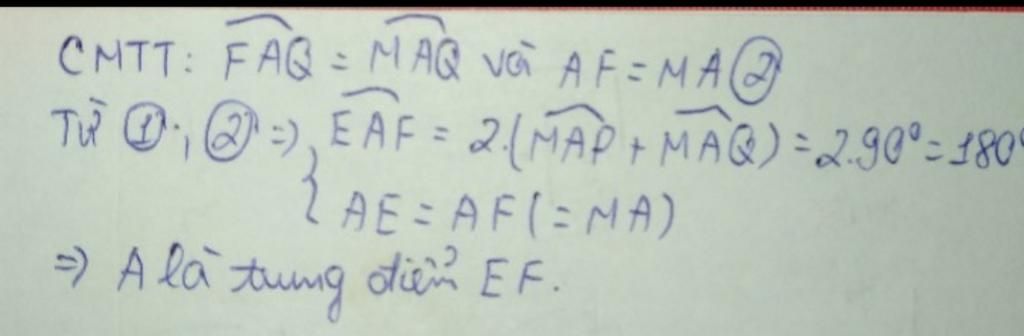 CMTT: $\widehat{FAQ}$ = $\widehat{MAQ}$ và AF = MA ②
Từ ①; ② => { $\widehat{EAF}$ = 2.($\widehat{MAP}$ + $\widehat{MAQ}$) = 2.90° = 180°
AE = AF (= MA)
=> A là trung điểm EF.